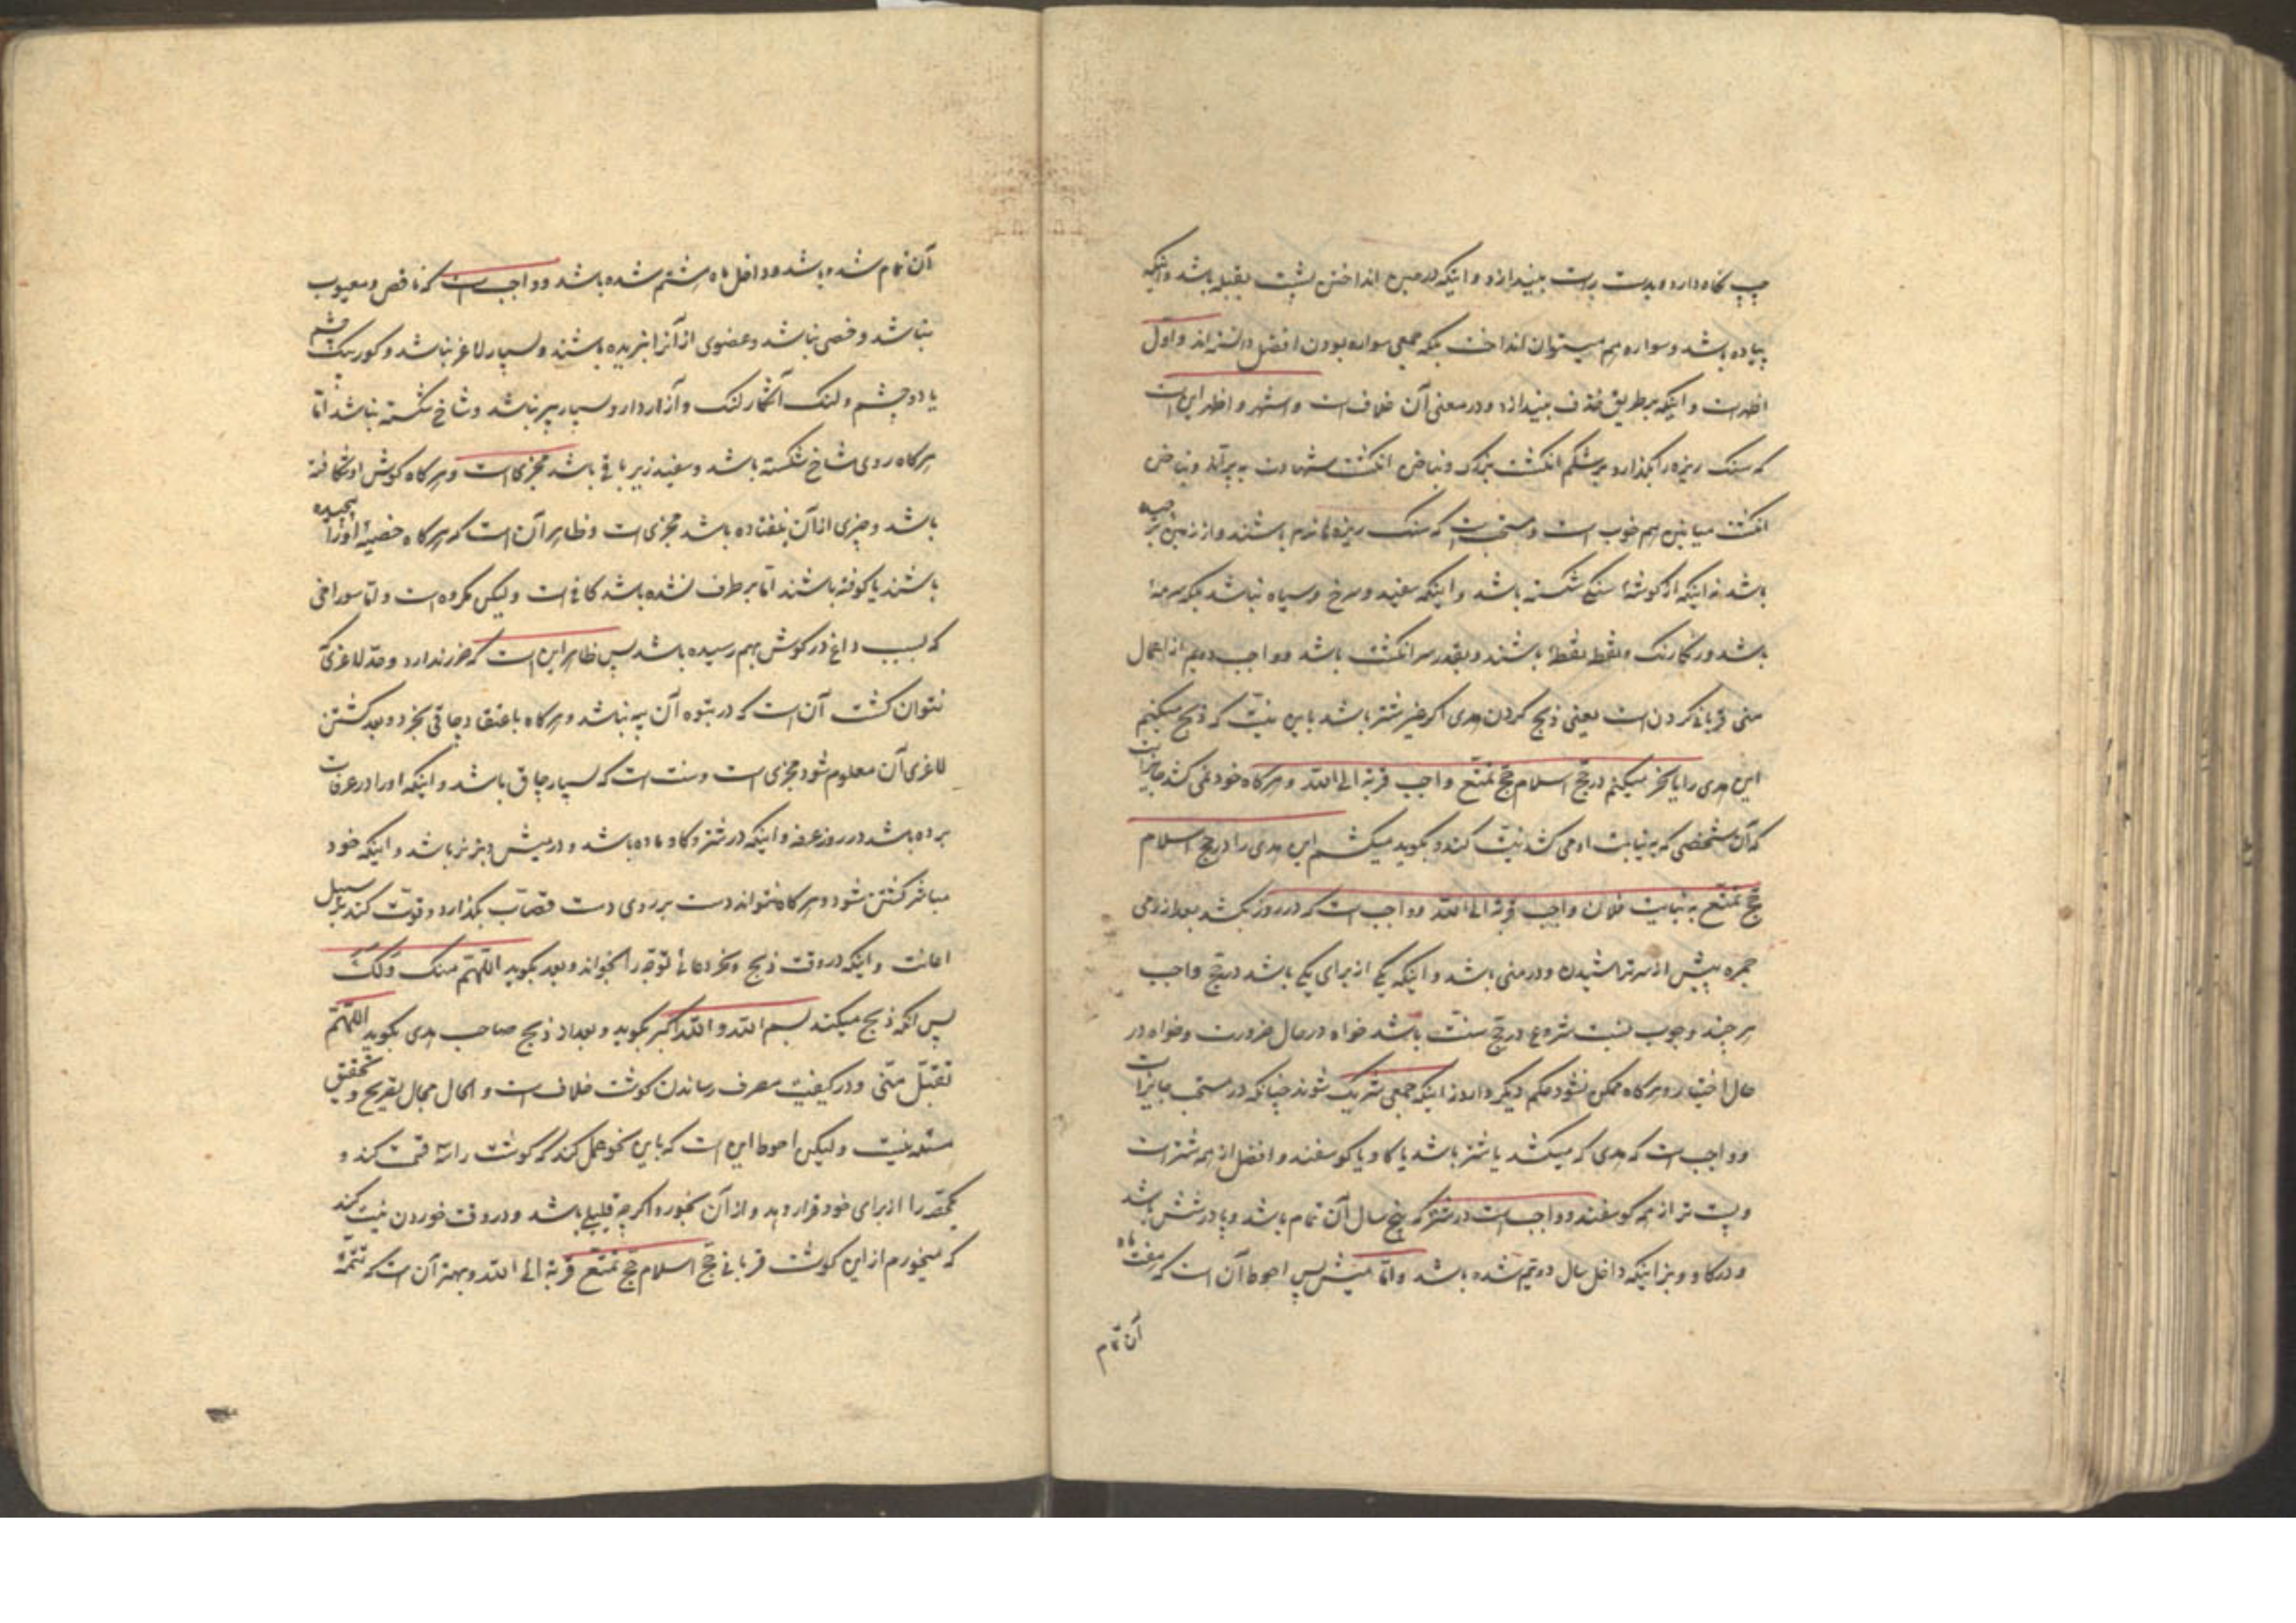 چپ نگاه دارد و بدست راست بیندازد و اینکه در حین انداختن پشت بقبله باشد و اینکه
پیاده باشد و سواره هم میتوان انداخت بلکه جمعی سواره بودن را افضل دانسته‌اند و اول
اظهر است و اینکه بر طریق خذف بیندازد و در معنی آن خلاف است و اشهر و اظهر این است
که سنک ریزه را بگذارد بر شکم انگشت بزرک و بناخن انگشت شهادت بپراند و بناخن
انگشت میانین هم خوب است و مستحب است که سنک ریزه‌ها نرم باشند و از زمین برچیده
باشد نه اینکه از گوشهٔ سنگی شکسته باشد و اینکه سفید و سرخ و سیاه نباشد بلکه سرمهٔ
باشد و رنگارنک و نقطه نقطه باشند و بقدر سر انگشت باشد و واجب دویم از اعمال
منی قربانی کردن است یعنی ذبح کردن هدی اگر غیر شتر باشد باین نیت که ذبح میکنم
این هدی را یا نحر میکنم در حج اسلام حج تمتع واجب قربة الی الله و هرگاه خود نمی کشد جایز است
که آن شخصی که به نیابت او می کشد نیت کند و بگوید میکشم این هدی را در حج اسلام
حج تمتع به نیابت فلان واجب قربة الی الله و واجب است که در روز بکشد بعد از رمی
جمره پیش از سر تراشیدن و در منی باشد و اینکه یکی از برای یکی باشد در حج واجب
هر چند وجوب بسبب شروع در حج سنت باشد خواه در حال ضرورت و خواه در
حال اختیار و هرگاه ممکن نشود حکم دیگر دارد نه اینکه جمعی شریک شوند چنانکه در مستحب جایز است
و واجب است که هدی که میکشد یا شتر باشد یا گاو یا گوسفند و افضل از همه شتر است
و پست تر از همه گوسفند و واجب است در شتر که پنج سال آن تمام باشد و پا در شش باشد
و در گاو و بز اینکه داخل سال دویم شده باشد و اما میش پس احوط آن است که هفت ماه
آن تمام
آن تمام شده باشد و داخل ماه هشتم شده باشد و واجب است که ناقص و معیوب
نباشد و خصی نباشد و عضوی از آنرا نبریده باشند و بسیار لاغر نباشد و کور یک چشم
یا دو چشم و لنک آشکار لنک و آزاردار و بسیار پیر نباشد و شاخ شکسته نباشد اما
هرگاه روی شاخ شکسته باشد و سفید زیر باقی باشد مجزی است و هرگاه گوش او شکافته
باشد و چیزی از آن نیفتاده باشد مجزی است و ظاهر آن است که هرگاه خصیهٔ او را پیچیده
باشند یا کوفته باشند اما برطرف نشده باشد کافی است ولیکن مکروه است و اما سوراخی
که بسبب داغ در گوش بهم رسیده باشد پس ظاهر این است که ضرر ندارد و حد لاغری که
نتوان کشت آن است که در پتوه آن پیه نباشد و هرگاه باعتقاد چاقی بخرد و بعد کشتن
لاغری آن معلوم شود مجزی است و سنت است که بسیار چاق باشد و اینکه او را در عرفات
برده باشد در روز عرفه و اینکه در شتر و گاو ماده باشد و در میش و بز نر باشد و اینکه خود
مباشر کشتن شود و هرگاه نتواند دست بر روی دست قصاب بگذارد و قوت کند بر سبیل
اعانت و اینکه در وقت ذبح و نحر دعای توجه را بخواند و بعد بگوید اللهم منک ولک
پس آنکه ذبح میکند بسم الله و الله اکبر بگوید و بعد از ذبح صاحب هدی بگوید اللهم
تقبل منی و در کیفیت مصرف رساندن گوشت خلاف است و الحال مجال تفریح و تحقیق
مستعد نیست ولیکن احوط این است که باین نحو عمل کند که گوشت را سه قسمت کند و
یکحصه را از برای خود قرار دهد و از آن بخورد اگرچه قلیلی باشد و در وقت خوردن نیت کند
که میخورم از این گوشت قربانی حج اسلام حج تمتع قربة الی الله و بهتر آن است که تتمهٔ